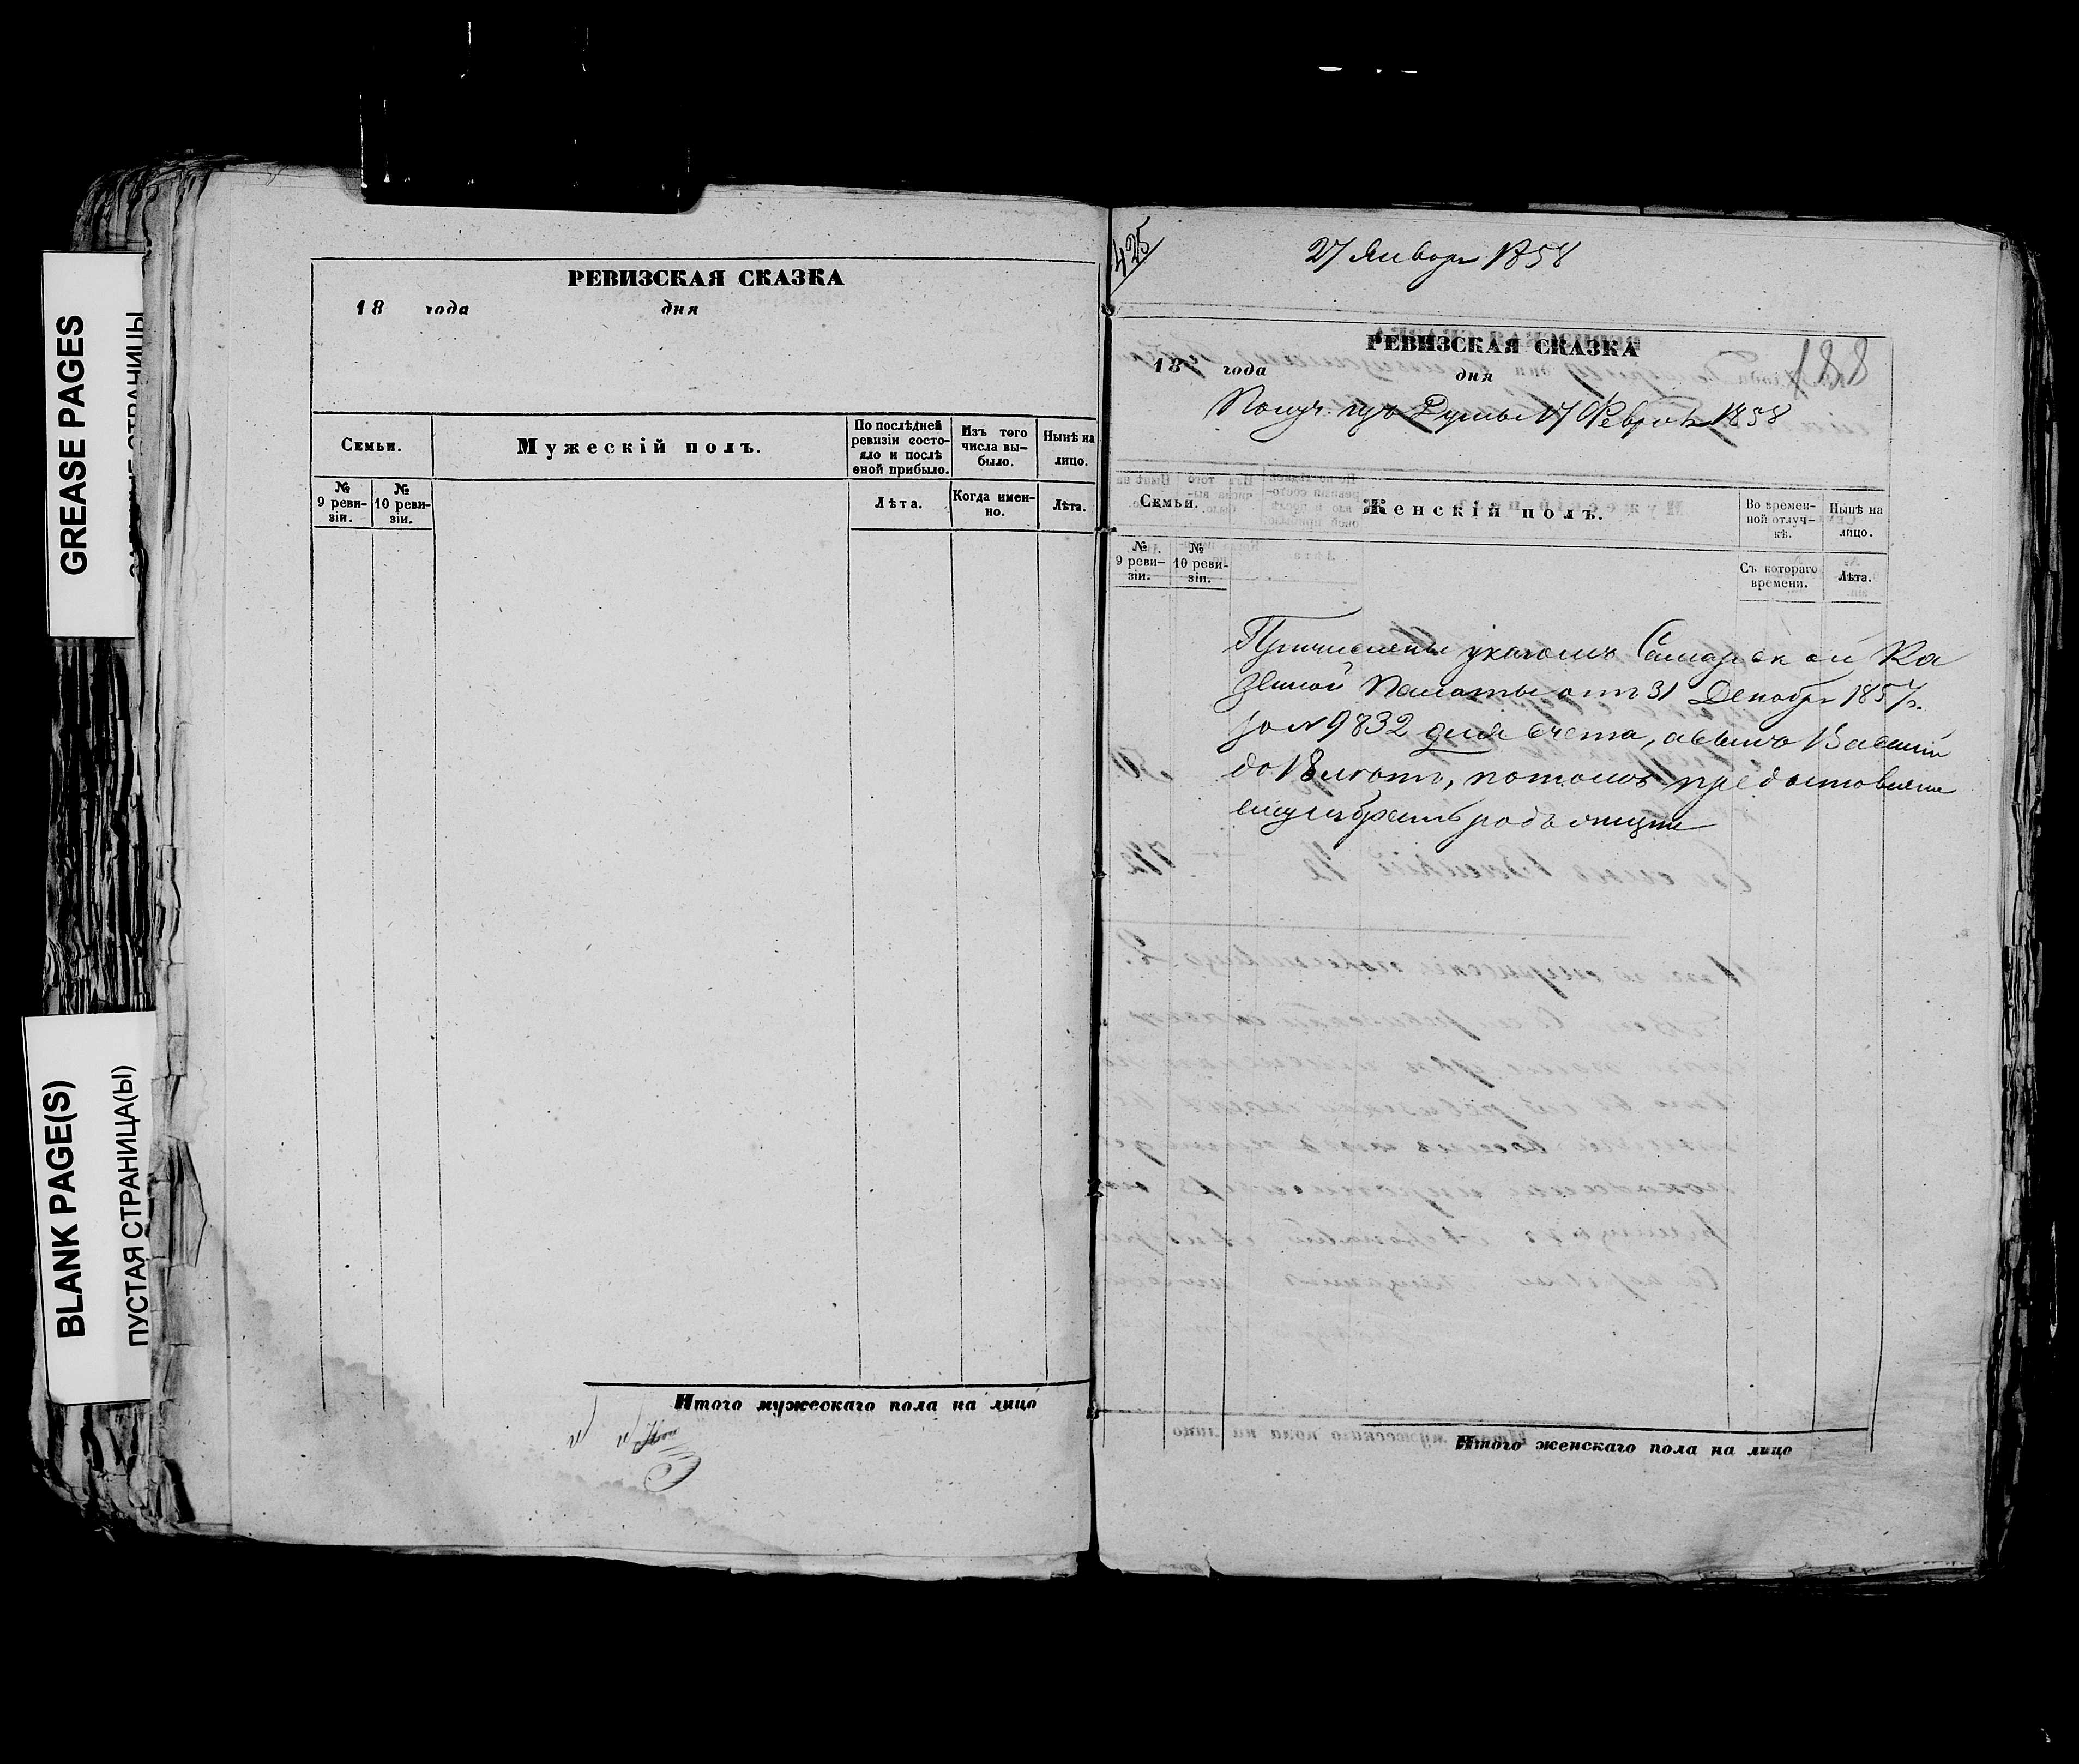 GREASE PAGES
BLANK PAGE(S)
ПУСТАЯ СТРАНИЦА(Ы)
РЕВИЗСКАЯ СКАЗКА
18 года дня
Семьи.
Мужескій полъ.
По послѣдней
ревизіи состо-
яло и послѣ
оной прибыло.
Изъ того
числа вы-
было.
Нынѣ на
лицо.
№
9 реви-
зіи.
№
10 реви-
зіи.
Лѣта.
Когда имен-
но.
Лѣта.
Итого мужескаго пола на лицо
425
27 Января 1858
РЕВИЗСКАЯ СКАЗКА
188
18 года дня
Получ. изъ Думы 17 Февраля 1858
Семьи.
Женскій полъ.
Во времен-
ной отлуч-
кѣ.
Нынѣ на
лицо.
№
9 реви-
зіи.
№
10 реви-
зіи.
Съ котораго
времени.
Лѣта.
Причислены указомъ Самарской Ка
зенной Палаты отъ 31 Декабря 1857 г.
за № 9832 для счета, а сынъ Василій
до 18 лѣтъ, потомъ предоставлено
ему избрать родъ жизни
Итого женскаго пола на лицо